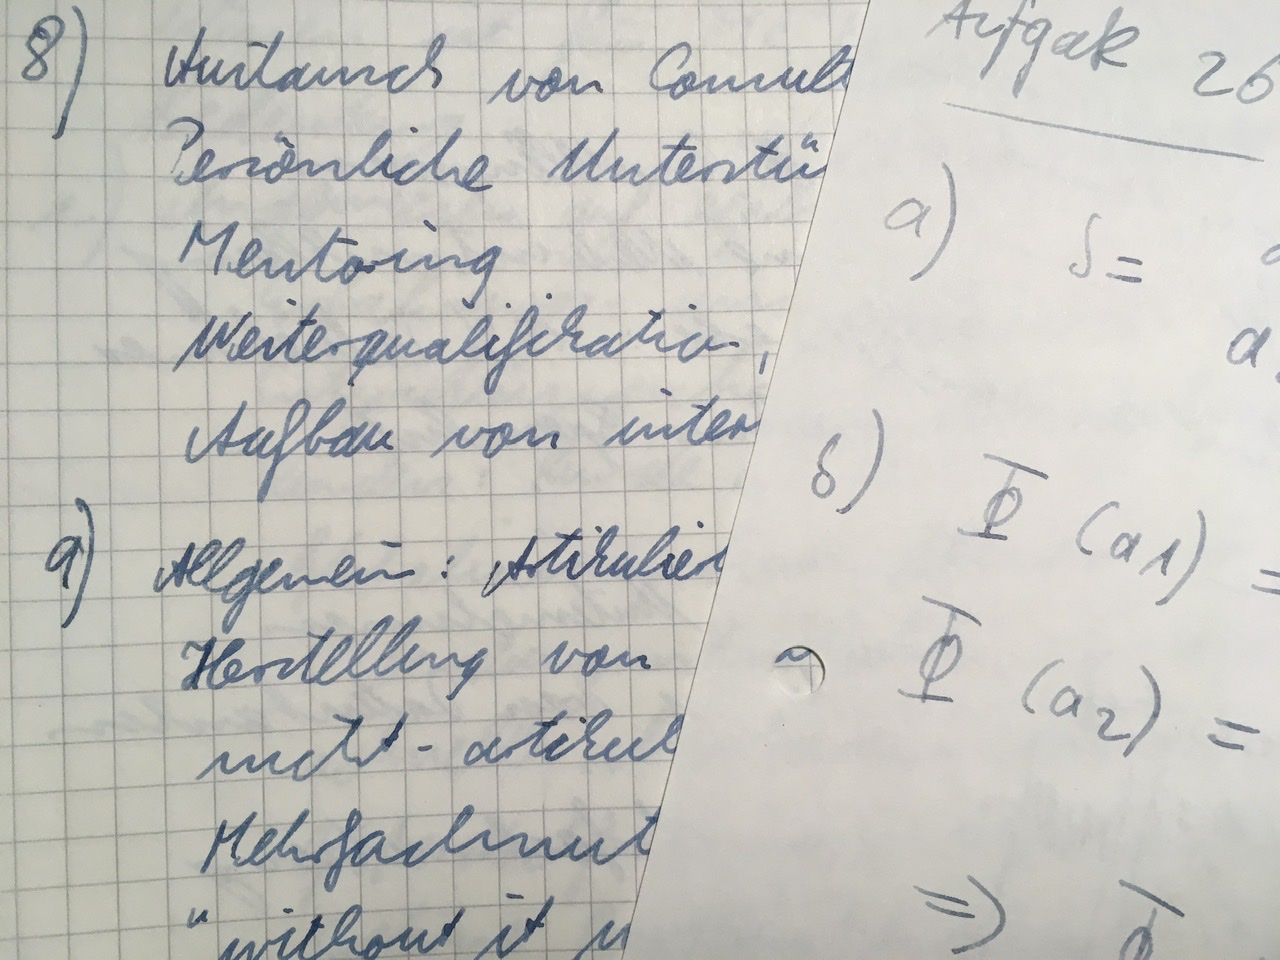 8) Austausch von Consult
Persönliche Unterstü
Mentoring
Weiterqualifikation,
Aufbau von inter
9) Allgemein: Artikulier
Herstellung von
nicht-artikul
Mehrfachnut
"without it
Aufgabe 26
a) S =
a
b) Φ (a1) =
Φ (a2) =
⇒ Φ